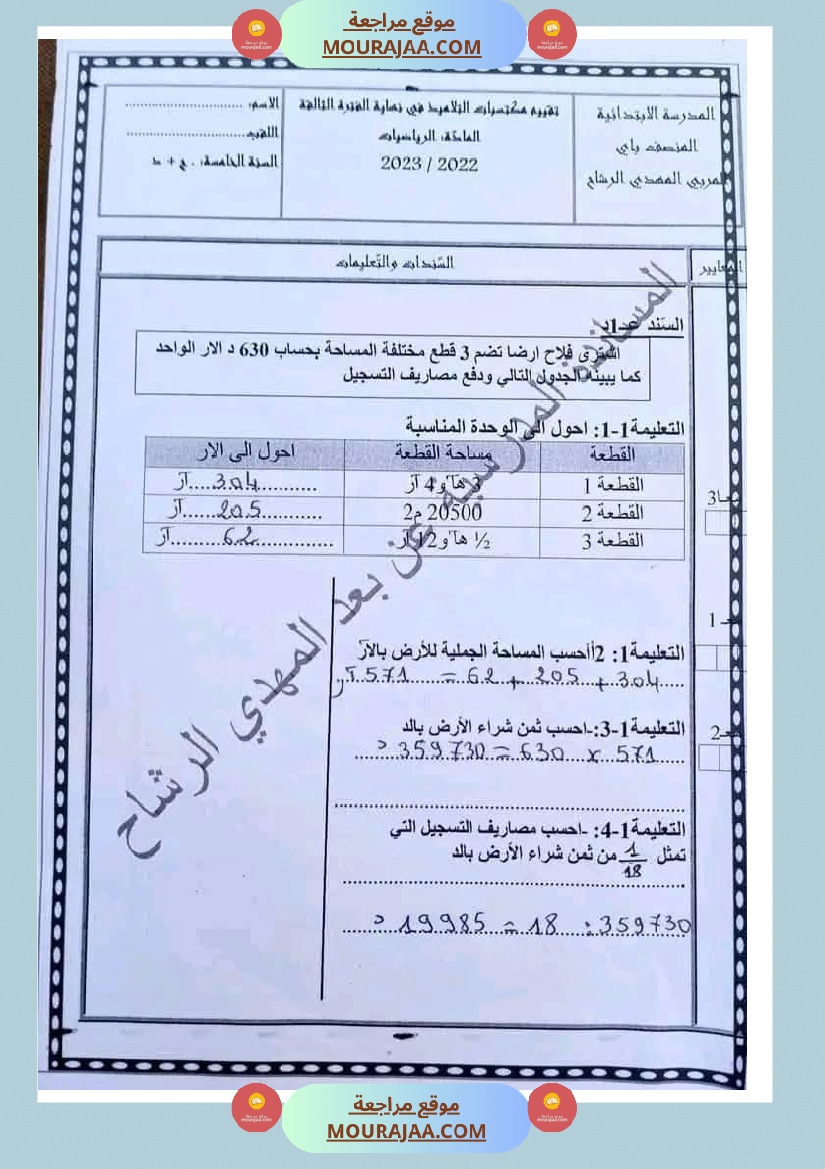 موقع مراجعة
MOURAJAA.COM
المدرسة الابتدائية
المنصف باي
المربي المهدي الرشاح
تقييم مكتسبات التلاميذ في نهاية الفترة الثالثة
المادة: الرياضيات
2023 / 2022
الاسم: ..............................
اللقب..............................
السنة الخامسة: . ج + د
المعايير
السندات والتعليمات
السند عـ1ـدد
اشترى فلاح ارضا تضم 3 قطع مختلفة المساحة بحساب 630 د الار الواحد
كما يبينه الجدول التالي ودفع مصاريف التسجيل
التعليمة1-1: احول الى الوحدة المناسبة
القطعة مساحة القطعة احول الى الار
القطعة 1 3 هآ و4 آر ...........304.....آر
القطعة 2 20500 م2 ...........205.......آر
القطعة 3 ½ هآ و12 آر ...............62.........آر
معـ3
معـ1
التعليمة1: 2أأحسب المساحة الجملية للأرض بالآر
304 + 205 + 62 = 571 آر
معـ2
التعليمة1-3:-احسب ثمن شراء الأرض بالد
571 x 630 = 359730 د
التعليمة1-4: -احسب مصاريف التسجيل التي
تمثل 1/18 من ثمن شراء الأرض بالد
359730 : 18 = 19985 د
المساندة المدرسية عن بعد المهدي الرشاح
موقع مراجعة
MOURAJAA.COM